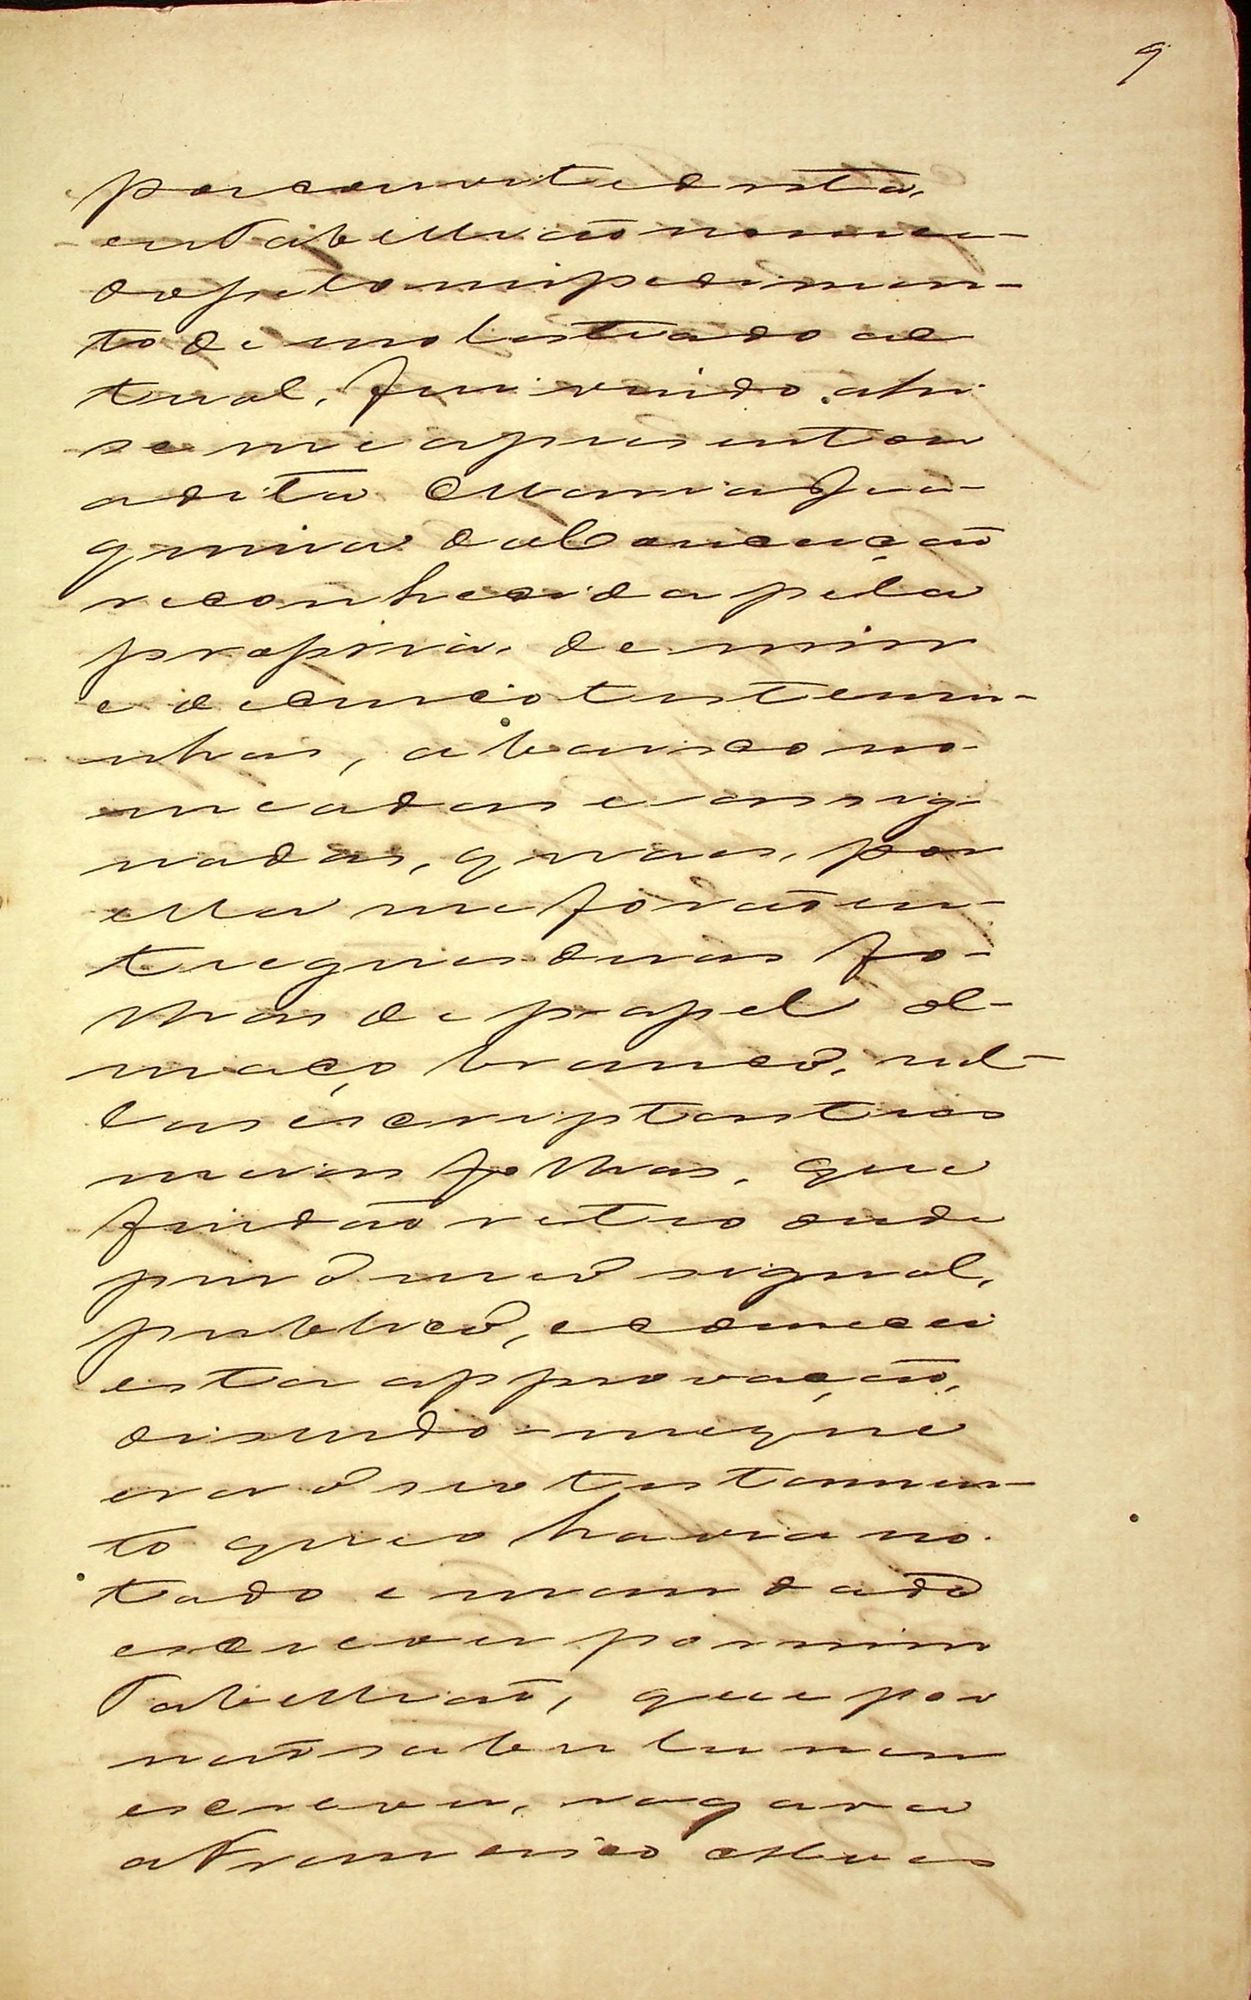 9
por convite desta,
eu Tabelliaõ nomea-
do pelo impedimen-
to de molestia do ac
tual, fui vindo ahi
se me apresentou
a dita Maria Joa-
quina da Conceiçaõ
reconhecida pela
propria, de mim
e de cinco testemu-
nhas, abaixo no
meadas e assig
nadas, quaes, por
ella me foraõ en-
tregues duas fo-
lhas de papel al-
maço branco, nel-
las escriptas tres
meias folhas, que
findaõ retro onde
puz o meu signal,
publico, e comecei
esta approvaçaõ,
disendo-me que
era o seu testamen-
to que o havia no
tado e mandado
escrever por mim
Tabelliaõ, que por
naõ saber ler nem
escrever, rogara
a Francisco Alves